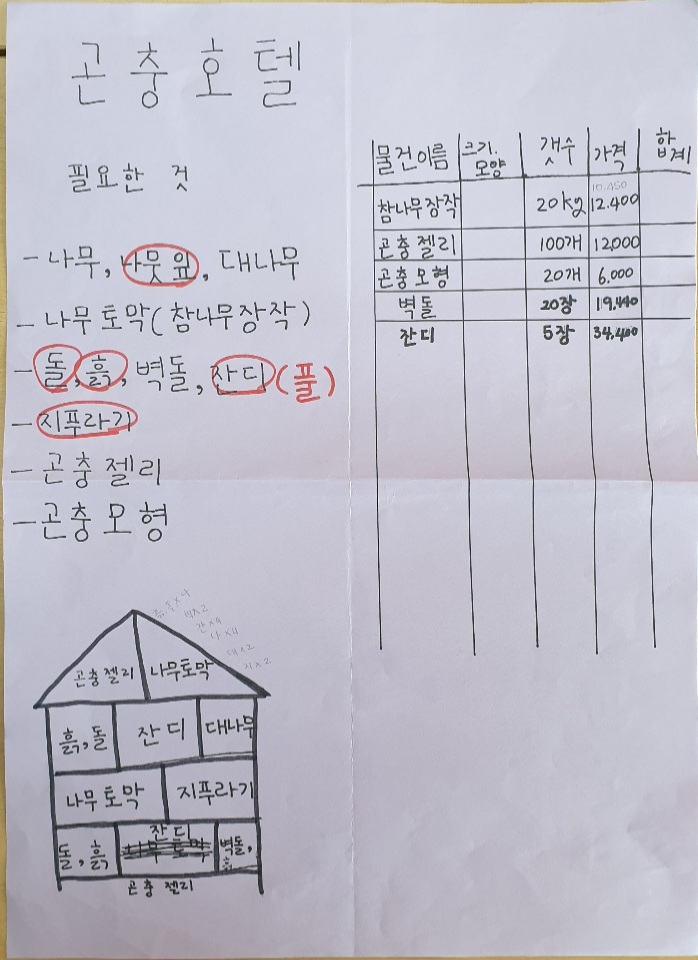 곤충호텔
필요한 것
- 나무, 나뭇잎, 대나무
- 나무토막(참나무장작)
- 돌, 흙, 벽돌, 잔디(풀)
- 지푸라기
- 곤충젤리
- 곤충모형
물건이름 크기. 모양 갯수 가격 합계
참나무장작 20kg 10.450 12.400
곤충젤리 100개 12,000
곤충모형 20개 6.000
벽돌 20장 19.440
잔디 5장 34.400
곤충젤리 나무토막
흙,돌 잔디 대나무
나무토막 지푸라기
잔디
돌,흙 벽돌,
곤충 젤리